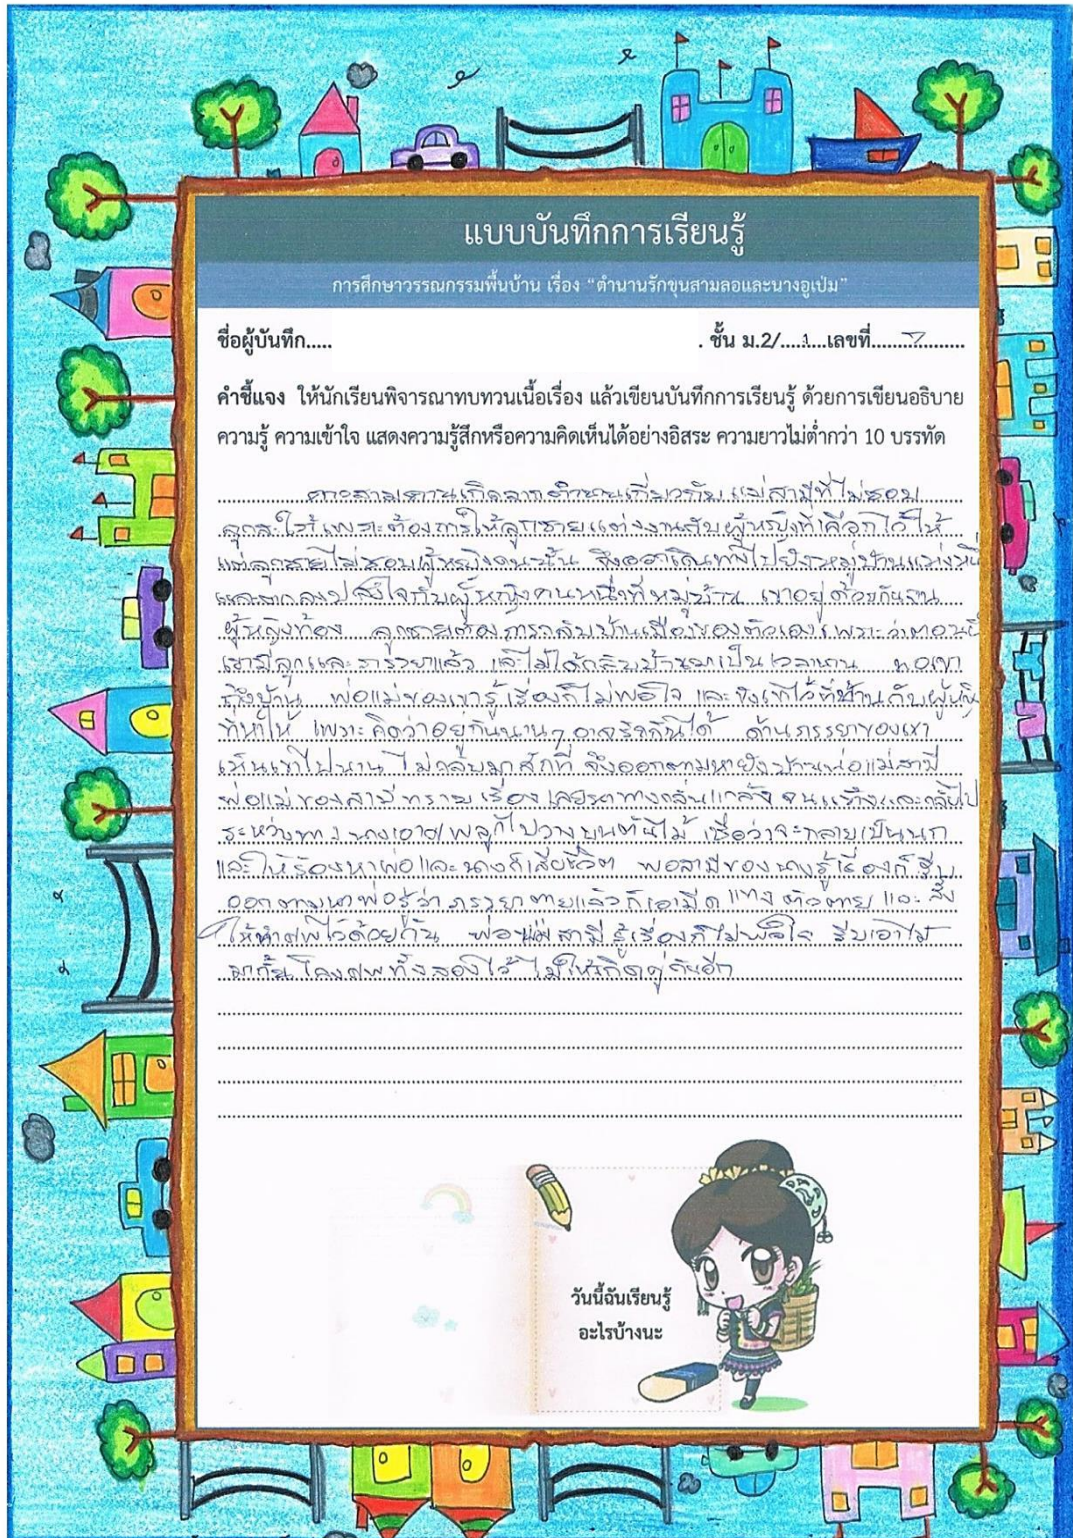 แบบบันทึกการเรียนรู้
การศึกษาวรรณกรรมพื้นบ้าน เรื่อง “ตำนานรักขุนสามลอและนางอูเปม”
ชื่อผู้บันทึก..... . ชั้น ม.2/.....1....เลขที่..................
คำชี้แจง ให้นักเรียนพิจารณาทบทวนเนื้อเรื่อง แล้วเขียนบันทึกการเรียนรู้ ด้วยการเขียนอธิบาย
ความรู้ ความเข้าใจ แสดงความรู้สึกหรือความคิดเห็นได้อย่างอิสระ ความยาวไม่ต่ำกว่า 10 บรรทัด
เกิดจากตำนานเกี่ยวกับ แม่สามีที่ไม่ชอบ
ลูกสะใภ้เพราะต้องการให้ลูกชายแต่งงานกับผู้หญิงที่เลือกไว้ให้
แต่ลูกชายไม่ชอบผู้หญิงคนนั้น จึงออกเดินทางไปยังหมู่บ้านแห่งหนึ่
และตกลงปลงใจกับผู้หญิงคนหนึ่งที่หมู่บ้าน เขาอยู่ด้วยกันจน
ผู้หญิงท้อง ลูกชายต้องการกลับบ้านเมืองของตัวเอง เพราะว่าตอนนี้
เขามีลูกและภรรยาแล้ว และไม่ได้กลับบ้านมาเป็นเวลานาน พอเขา
ถึงบ้าน พ่อแม่ของเขารู้เรื่องก็ไม่พอใจ และ ไว้ที่บ้านกับผู้หญิ
ที่หาให้ เพราะคิดว่าอยู่กันนานๆ อาจรักกันได้ ด้านภรรยาของเขา
เห็นเขาไปนาน ไม่กลับมาสักที จึงออกตามหายังบ้านพ่อแม่สามี
พ่อแม่ของสามีทราบเรื่อง กลั่นแกล้ง จนแท้งและกลับไป
ระหว่างทาง นางเอาศพลูกไปวางบนต้นไม้ เชื่อว่าจะกลายเป็นนก
และให้ร้องหาพ่อและนางก็เสียชีวิต พอสามีของนางรู้เรื่องก็รีบ
ออกตามหาพอรู้ว่าภรรยาตายแล้วก็เอามีดแทงตัวตาย และสั่ง
ให้นำศพไว้ด้วยกัน พ่อแม่สามีรู้เรื่องก็ไม่พอใจ รีบเอาไม้
มากั้นโลงศพทั้งสองไว้ ไม่ให้เกิดคู่กันอีก
วันนี้ฉันเรียนรู้
อะไรบ้างนะ